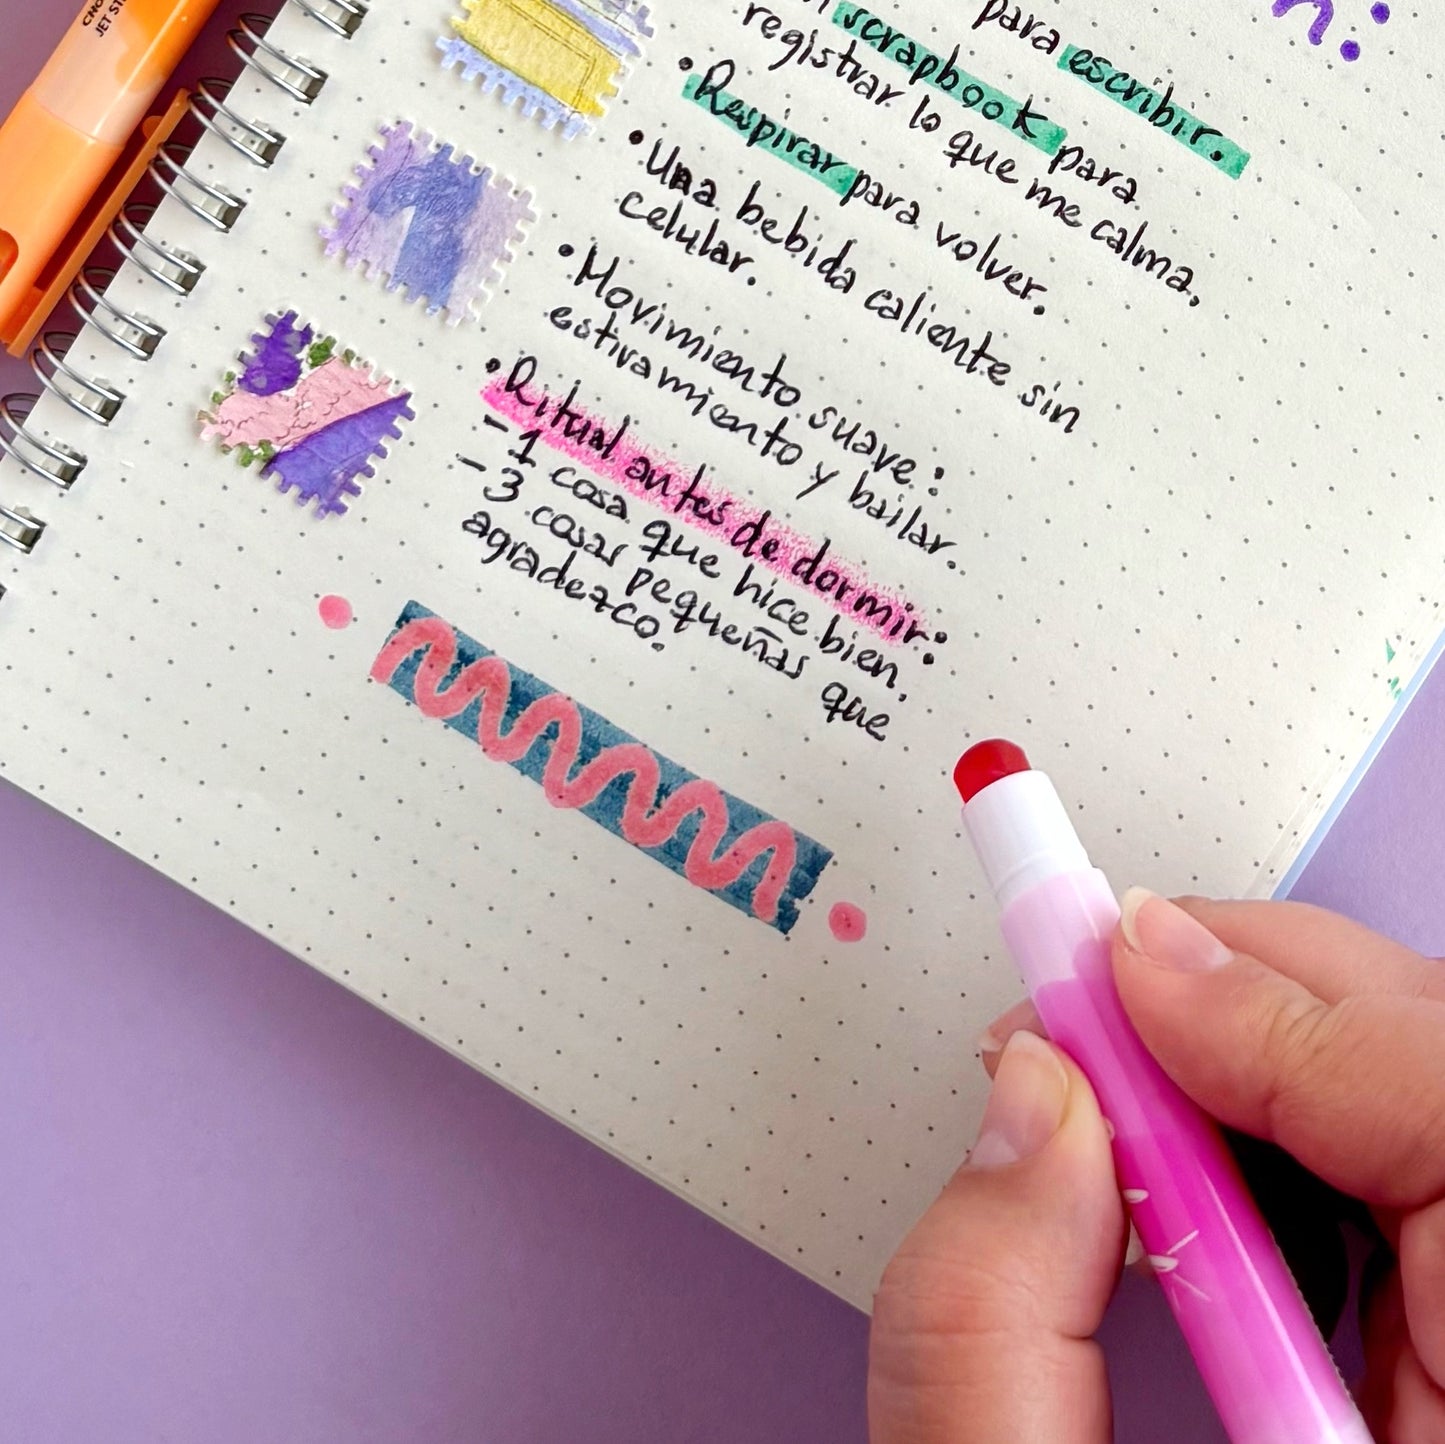 para escribir.
scrapbook para
registrar lo que me calma,
• Respirar para volver.
• Una bebida caliente sin
celular.
• Movimiento suave:
estiramiento y bailar.
• Ritual antes de dormir:
- 1 cosa que hice bien,
- 3 cosas pequeñas que
agradezco.
JET ST